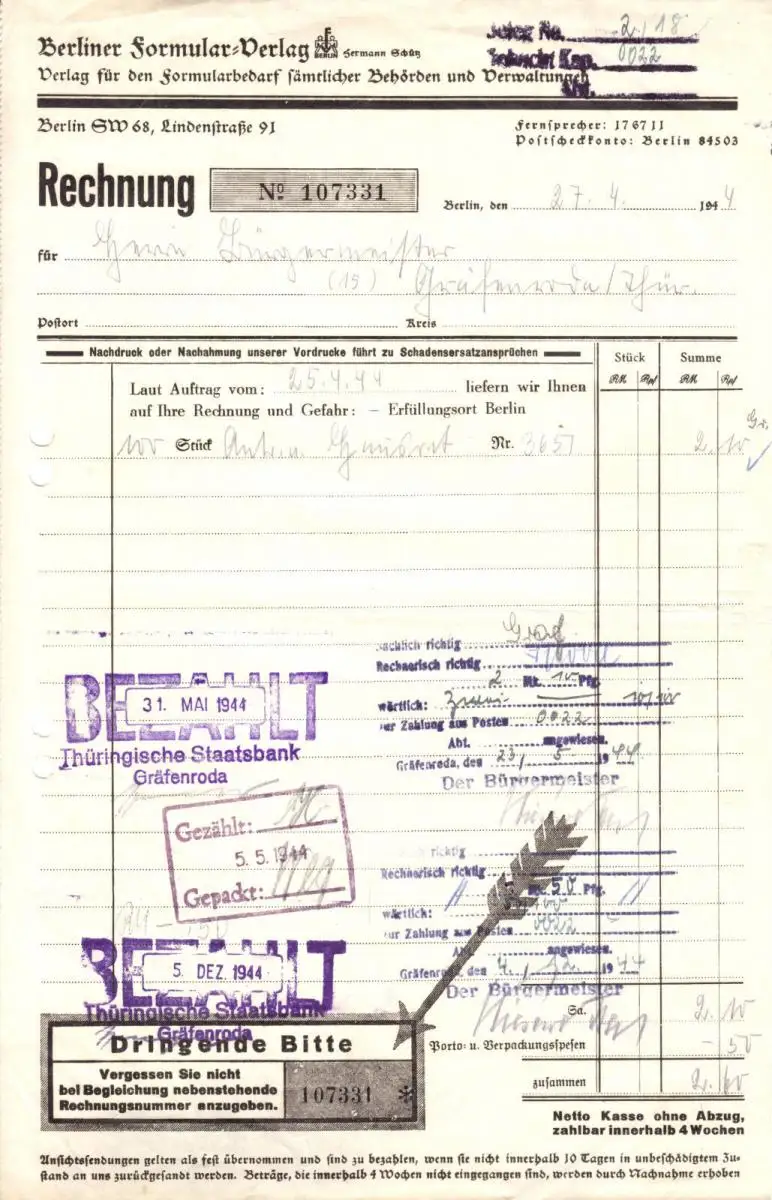 Berliner Formular-Verlag BERLIN Hermann Schütz
Verlag für den Formularbedarf sämtlicher Behörden und Verwaltungen
No. 2/18
Kap. 0022
Berlin SW 68, Lindenstraße 91
Fernsprecher: 176711
Postscheckkonto: Berlin 84503
Rechnung
Nº 107331
Berlin, den 27. 4. 1944
für Herrn Bürgermeister
(15) Gräfenroda/Thür.
Postort Kreis
Nachdruck oder Nachahmung unserer Vordrucke führt zu Schadensersatzansprüchen
Stück Summe
RM Rpf RM Rpf
Laut Auftrag vom: 25.4.44 liefern wir Ihnen
auf Ihre Rechnung und Gefahr: – Erfüllungsort Berlin
100 Stück Nr. 3651 2.10
sachlich richtig
Rechnerisch richtig
2 Mk. 10 Pfg.
wörtlich: Zwei 10/100
zur Zahlung aus Posten 0022
Abt. angewiesen.
Gräfenroda, den 23/5 1944
Der Bürgermeister
BEZAHLT
31. MAI 1944
Thüringische Staatsbank
Gräfenroda
Gezählt:
5. 5. 1944
Gepackt:
richtig
Rechnerisch richtig
Mk. 50 Pfg.
wörtlich:
zur Zahlung aus Posten 0022
Abt. angewiesen.
Gräfenroda, den 4./12. 1944
Der Bürgermeister
BEZAHLT
5. DEZ. 1944
Thüringische Staatsbank
Gräfenroda
Sa. 2.10
Porto- u. Verpackungsspesen – 50
zusammen 2.60
Dringende Bitte
Vergessen Sie nicht
bei Begleichung nebenstehende
Rechnungsnummer anzugeben.
107331 *
Netto Kasse ohne Abzug,
zahlbar innerhalb 4 Wochen
Ansichtssendungen gelten als fest übernommen und sind zu bezahlen, wenn sie nicht innerhalb 10 Tagen in unbeschädigtem Zu-
stand an uns zurückgesandt werden. Beträge, die innerhalb 4 Wochen nicht eingegangen sind, werden durch Nachnahme erhoben